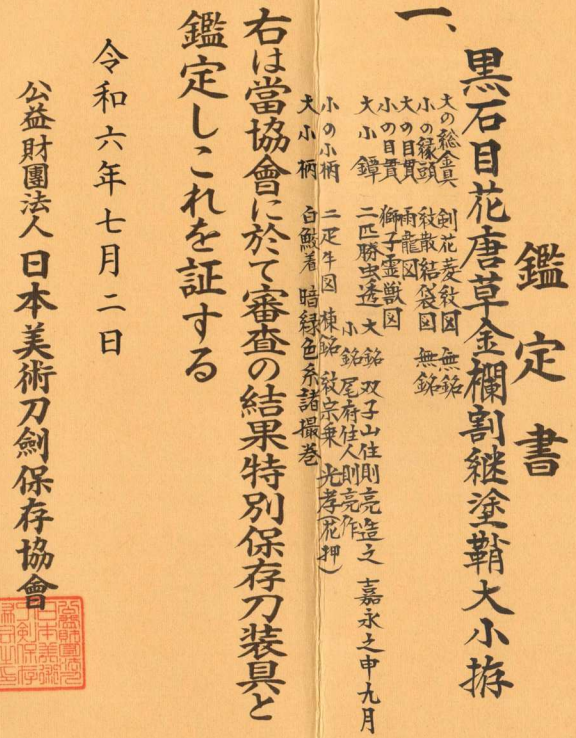 鑑定書
一、黒石目花唐草金欄割継塗鞘大小拵
大の総金具 剣花菱紋図 無銘
小の縁頭 紋散結袋図 無銘
大の目貫 雨龍図
小の目貫 獅子霊獣図
大小鐔 二匹勝虫透 大 銘 双子山住則亮造之 嘉永之申九月
小 銘 尾府住人則亮作
小の小柄 二疋牛図 棟銘 紋宗乗 光孝(花押)
大小柄 白鮫着 暗緑色糸諸撮巻
右は當協會に於て審査の結果特別保存刀装具と
鑑定しこれを証する
令和六年七月二日
公益財團法人 日本美術刀劍保存協會